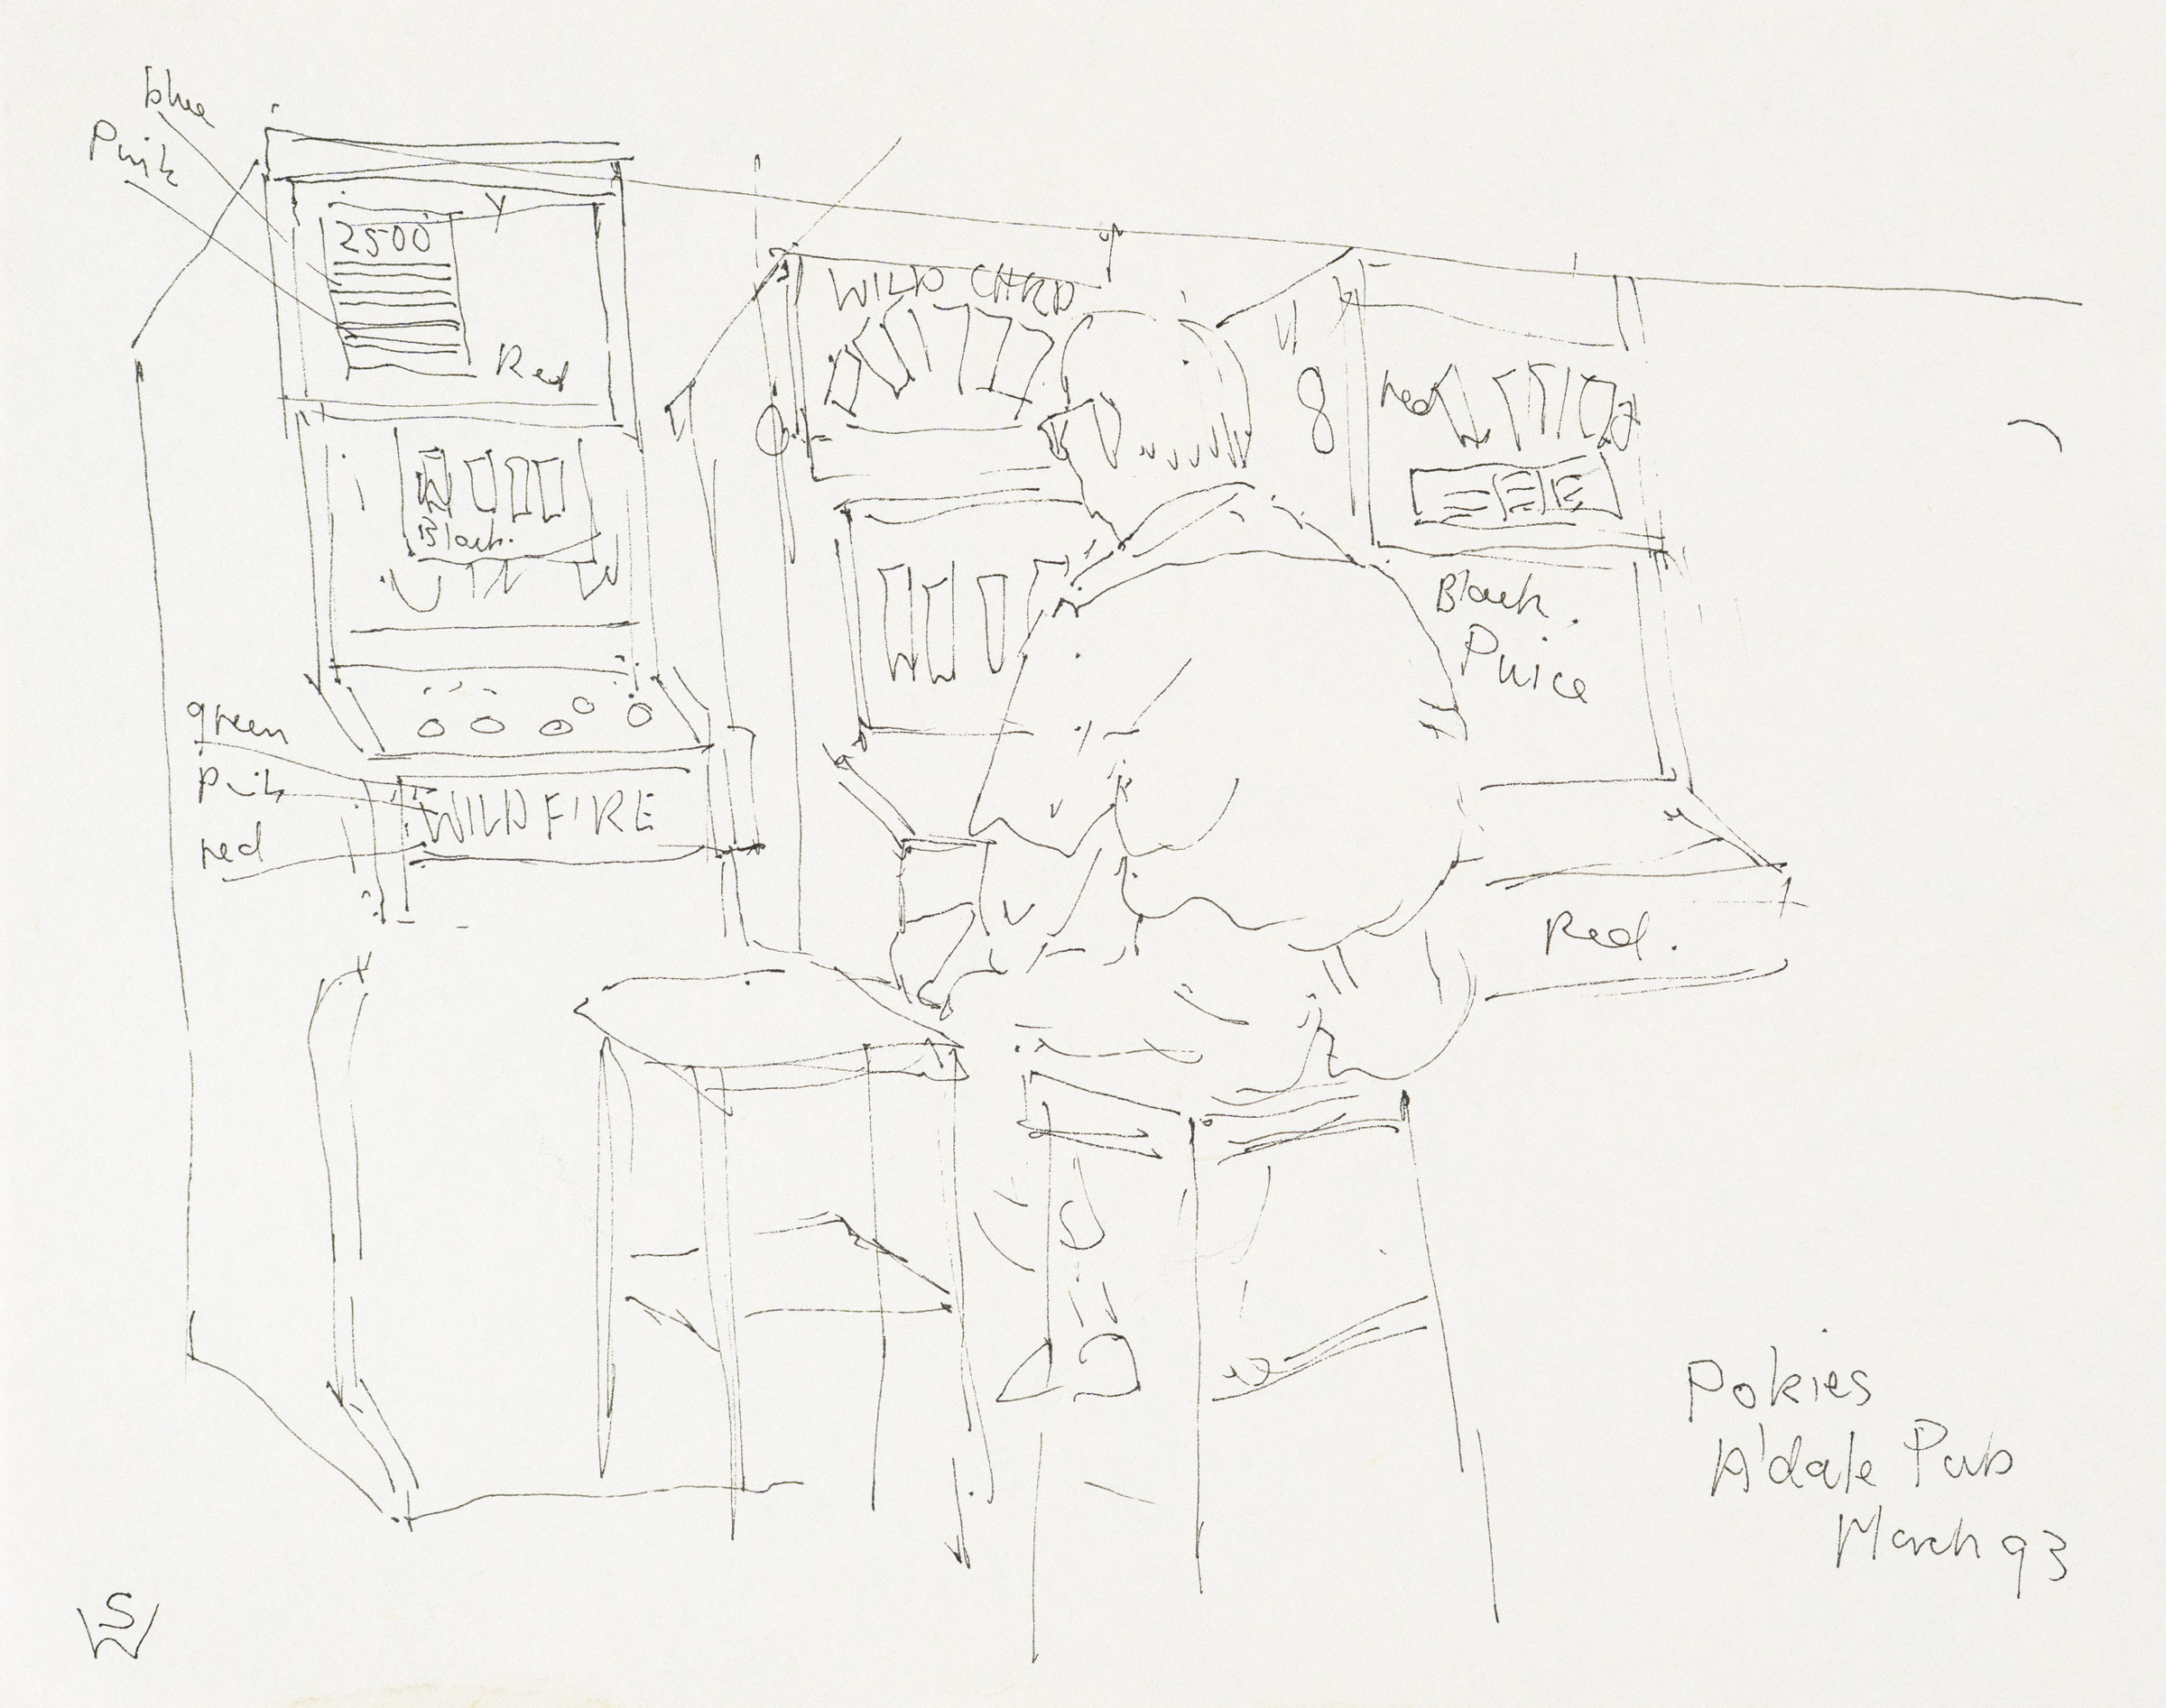 blue
Pink
2500
Y
Red
Black.
green
Pink
red
WILD FIRE
WILD CARD
8
red
Black.
Puice
Red.
Pokies
A'dale Pub
March 93
SW